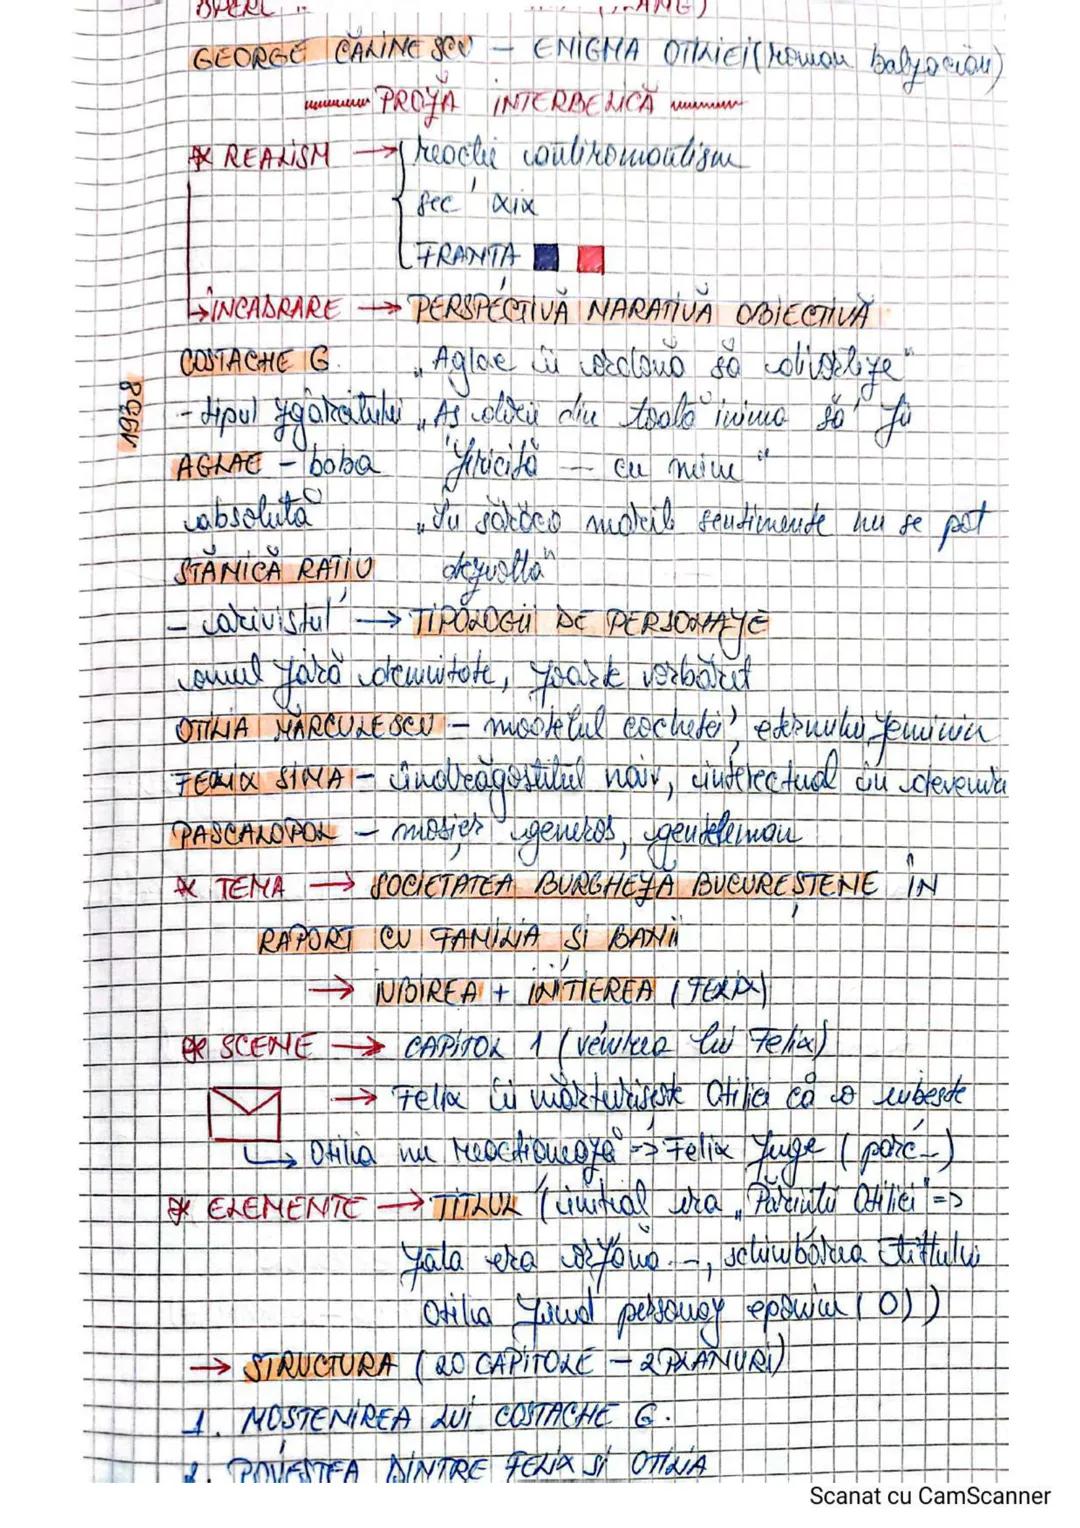 GEORGE CĂLINESCU – ENIGMA OTILIEI (roman balzacian)
PROZA INTERBELICĂ
* REALISM → reacție antiromantism
sec xix
FRANTA
→ ÎNCADRARE → PERSPECTIVĂ NARATIVĂ OBIECTIVĂ
COSTACHE G. „Aglae îi ordonă să
- tipul zgârcitului „Aș dori din toată inima să fii
AGLAE – baba fericită – cu mine"
absolută „În sărăcia marile sentimente nu se pot
STĂNICĂ RAȚIU dezvolta"
- arivistul → TIPOLOGII DE PERSONAJE
omul fără demnitate, foarte vorbăreț
OTILIA MĂRCULESCU – modelul cochetei, eternului feminin
FELIX SIMA – îndrăgostitul naiv, intelectual în devenire
PASCALOPOL – moșier generos, gentleman
* TEMA → SOCIETATEA BURGHEZĂ BUCUREȘTENE ÎN
RAPORT CU FAMILIA ȘI BANII
→ IUBIREA + INIȚIEREA (FELIX)
* SCENE → CAPITOL 1 (venirea lui Felix)
→ Felix îi mărturisește Otiliei că o iubește
↳ Otilia nu reacționează => Felix fuge (parc–)
* ELEMENTE → TITLUL (inițial era „Părinții Otiliei" =>
fata era orfană..., schimbarea titlului
Otilia fiind personaj eponim (O))
→ STRUCTURA (20 CAPITOLE – 2 PLANURI)
1. MOȘTENIREA LUI COSTACHE G.
2. POVESTEA DINTRE FELIX ȘI OTILIA
Scanat cu CamScanner